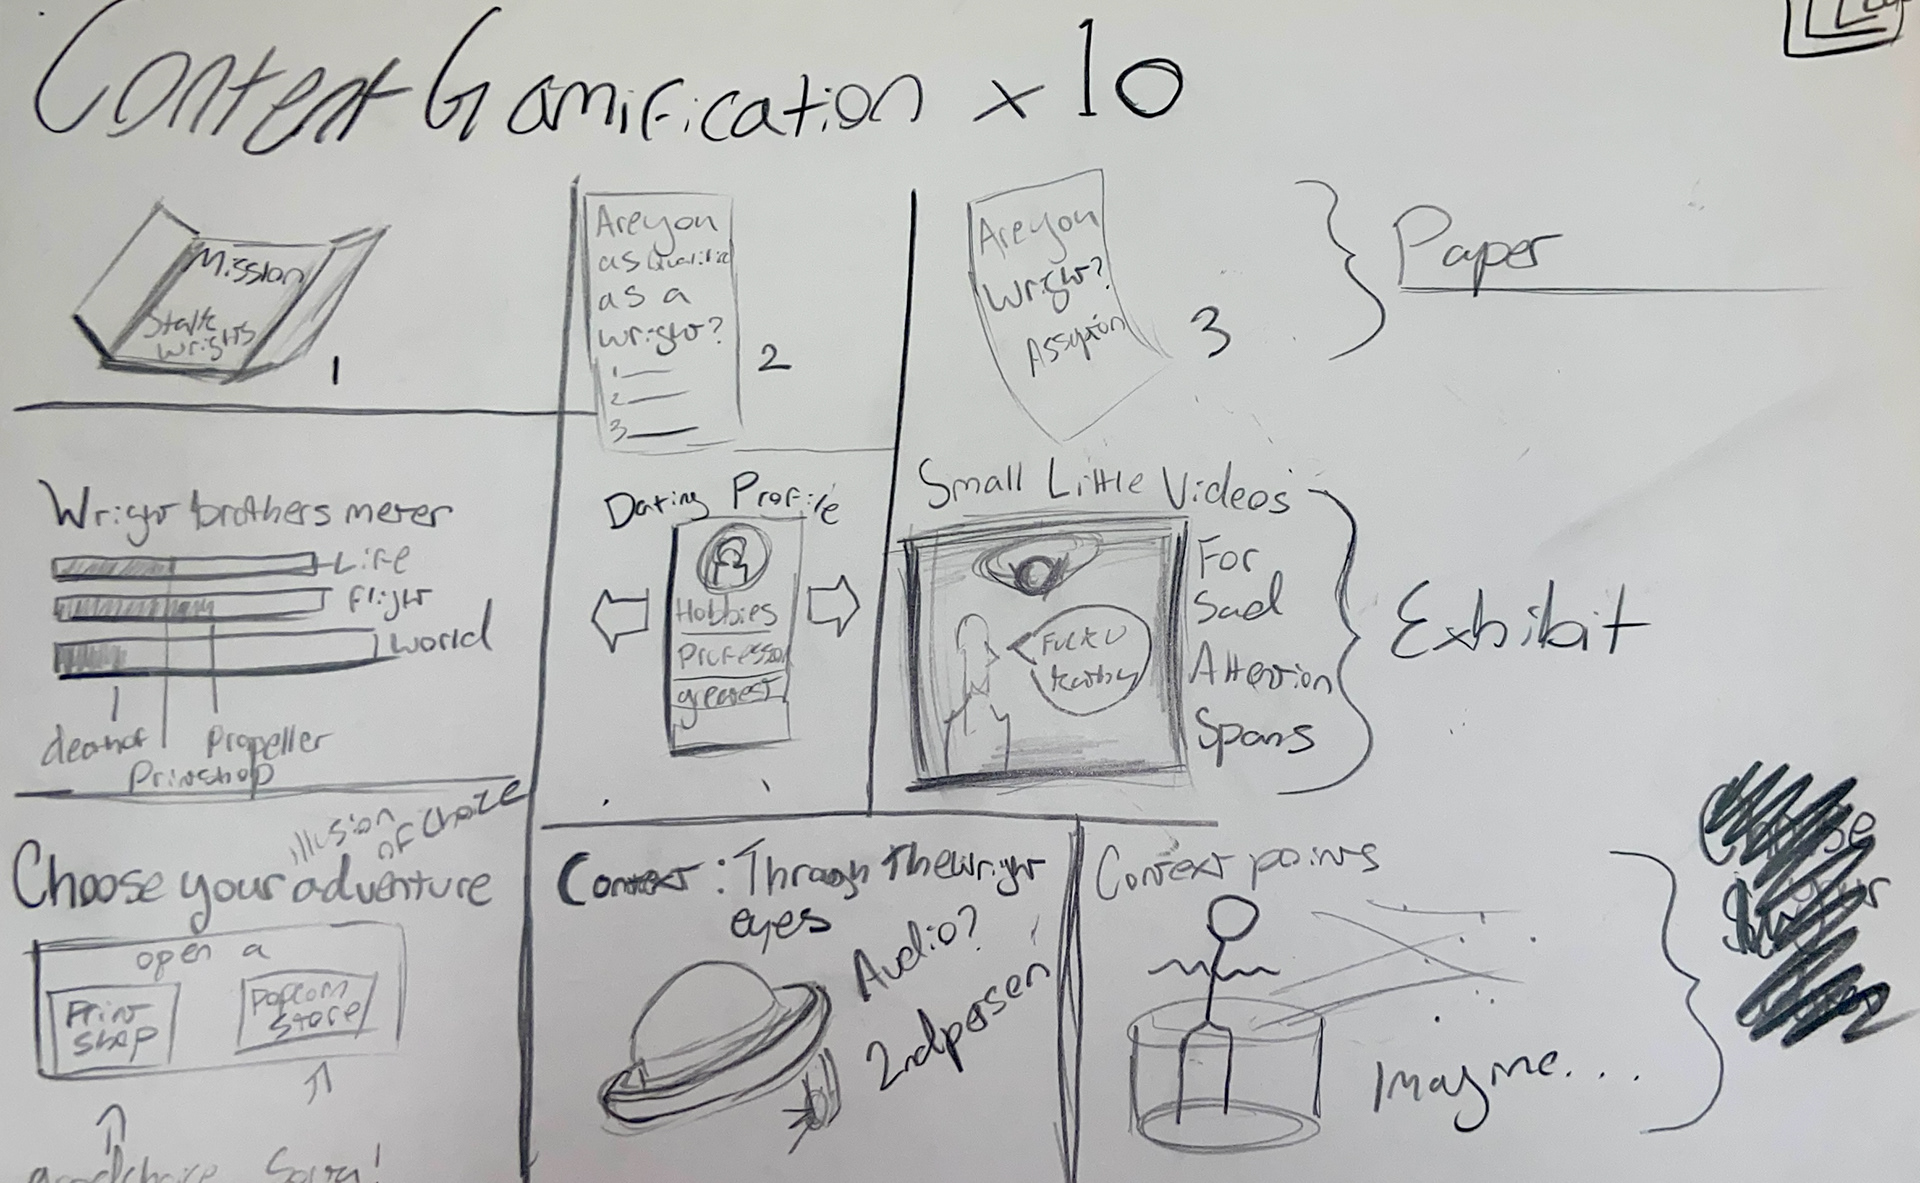 Content Gamification x 10
Mission
Stalk
Wrights
1
Are you
as Qualified
as a
Wright?
1
2
3
2
Are you
Wright?
3
Paper
Wright brothers meter
Life
Flight
World
death of
Propeller
Printshop
Dating Profile
Hobbies
Profession
greatest
Small Little Videos
For
Sad
Attention
Spans
Fuck U
Exhibit
illusion
of choize
Choose your adventure
open a
Print
shop
Popcorn
Store
good choice
Sorry!
Context: Through the wright
eyes
Audio?
2nd person
Context points
Imagine...